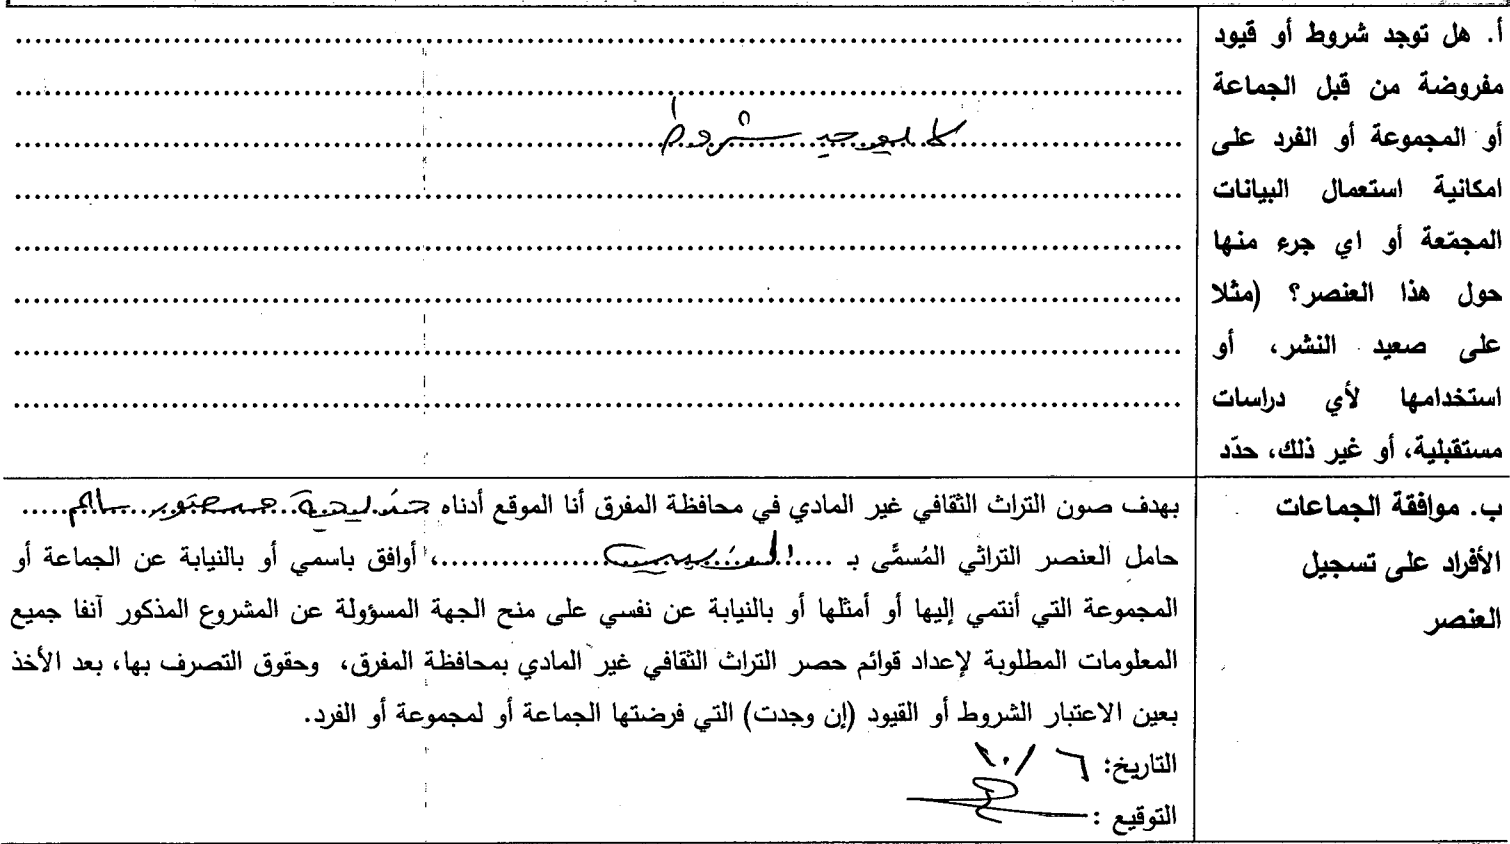 أ. هل توجد شروط أو قيود
مفروضة من قبل الجماعة
أو المجموعة أو الفرد على
امكانية استعمال البيانات
المجمّعة أو اي جرء منها
حول هذا العنصر؟ (مثلا
على صعيد النشر، أو
استخدامها لأي دراسات
مستقبلية، أو غير ذلك، حدّد
لا يوجد شروط
ب. موافقة الجماعات
الأفراد على تسجيل
العنصر
بهدف صون التراث الثقافي غير المادي في محافظة المفرق أنا الموقع أدناه
حامل العنصر التراثي المُسمَّى بـ ......، أوافق باسمي أو بالنيابة عن الجماعة أو
المجموعة التي أنتمي إليها أو أمثلها أو بالنيابة عن نفسي على منح الجهة المسؤولة عن المشروع المذكور آنفا جميع
المعلومات المطلوبة لإعداد قوائم حصر التراث الثقافي غير المادي بمحافظة المفرق، وحقوق التصرف بها، بعد الأخذ
بعين الاعتبار الشروط أو القيود (إن وجدت) التي فرضتها الجماعة أو لمجموعة أو الفرد.
التاريخ: ٦ /١٠
التوقيع :